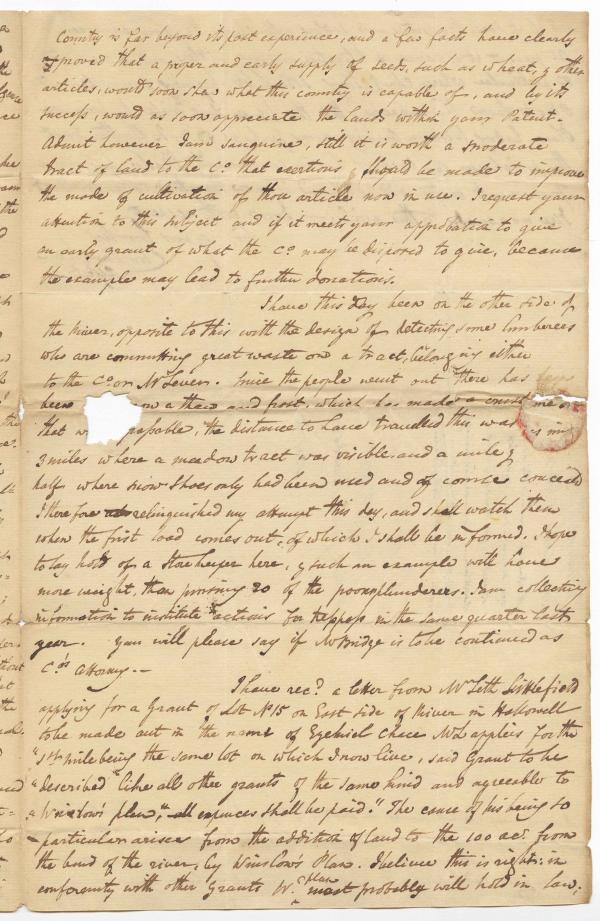 Country is far beyond its past experience, and a few facts have clearly
proved that a proper and early supply of seeds, such as wheat, & other
articles, would soon shew what this country is capable of, and by its
success, would as soon appreciate the lands within your Patent.
Admit however I am sanguine, still it is worth a moderate
tract of land to the Co. that exertions should be made to improve
the mode of cultivation of those article now in use. I request your
attention to this subject and if it meets your approbation to give
an early grant of what the Co. may be disposed to give, because
the example may lead to further donations.
I have this day been on the other side of
the River, opposite to this with the design of detecting some lumberers
who are committing great waste on a tract, belonging either
to the Co. or Mr Leven. Since the people went out there has
been a thaw and frost, which has made a crust
that passable, the distance to have travelled this was
3 miles where a meadow tract was visible and a mile &
half where snow shoes only had been used and of course conceal'd
I therefore relinquished my attempt this day, and shall watch them
when the first load comes out, of which I shall be informed. I hope
to lay hold of a Store keeper here, & such an example will have
more weight, than 20 of the poor plunderers. I am collecting
information to institute actions for trespass in the same quarter last
year. You will please say if Mr Bridge is to be continued as
Co's Attorney.—
I have recd. a letter from Mr Seth Littlefield
applying for a Grant of Lot No 15 on East side of River in Hallowell
to be made out in the name of Ezekiel Chace Mr L applies for the
"1st mile being the same lot on which I now live, said Grant to be
"described" like all other grants of the same kind and agreeable to
"Winslow's plan," all expences shall be paid." The cause of his being so
particular arises from the addition of land to the 100 acs. from
the bend of the river, by Winslow's Plan. I believe this is right: in
conformity with other Grants W.s plan most probably will hold in law: